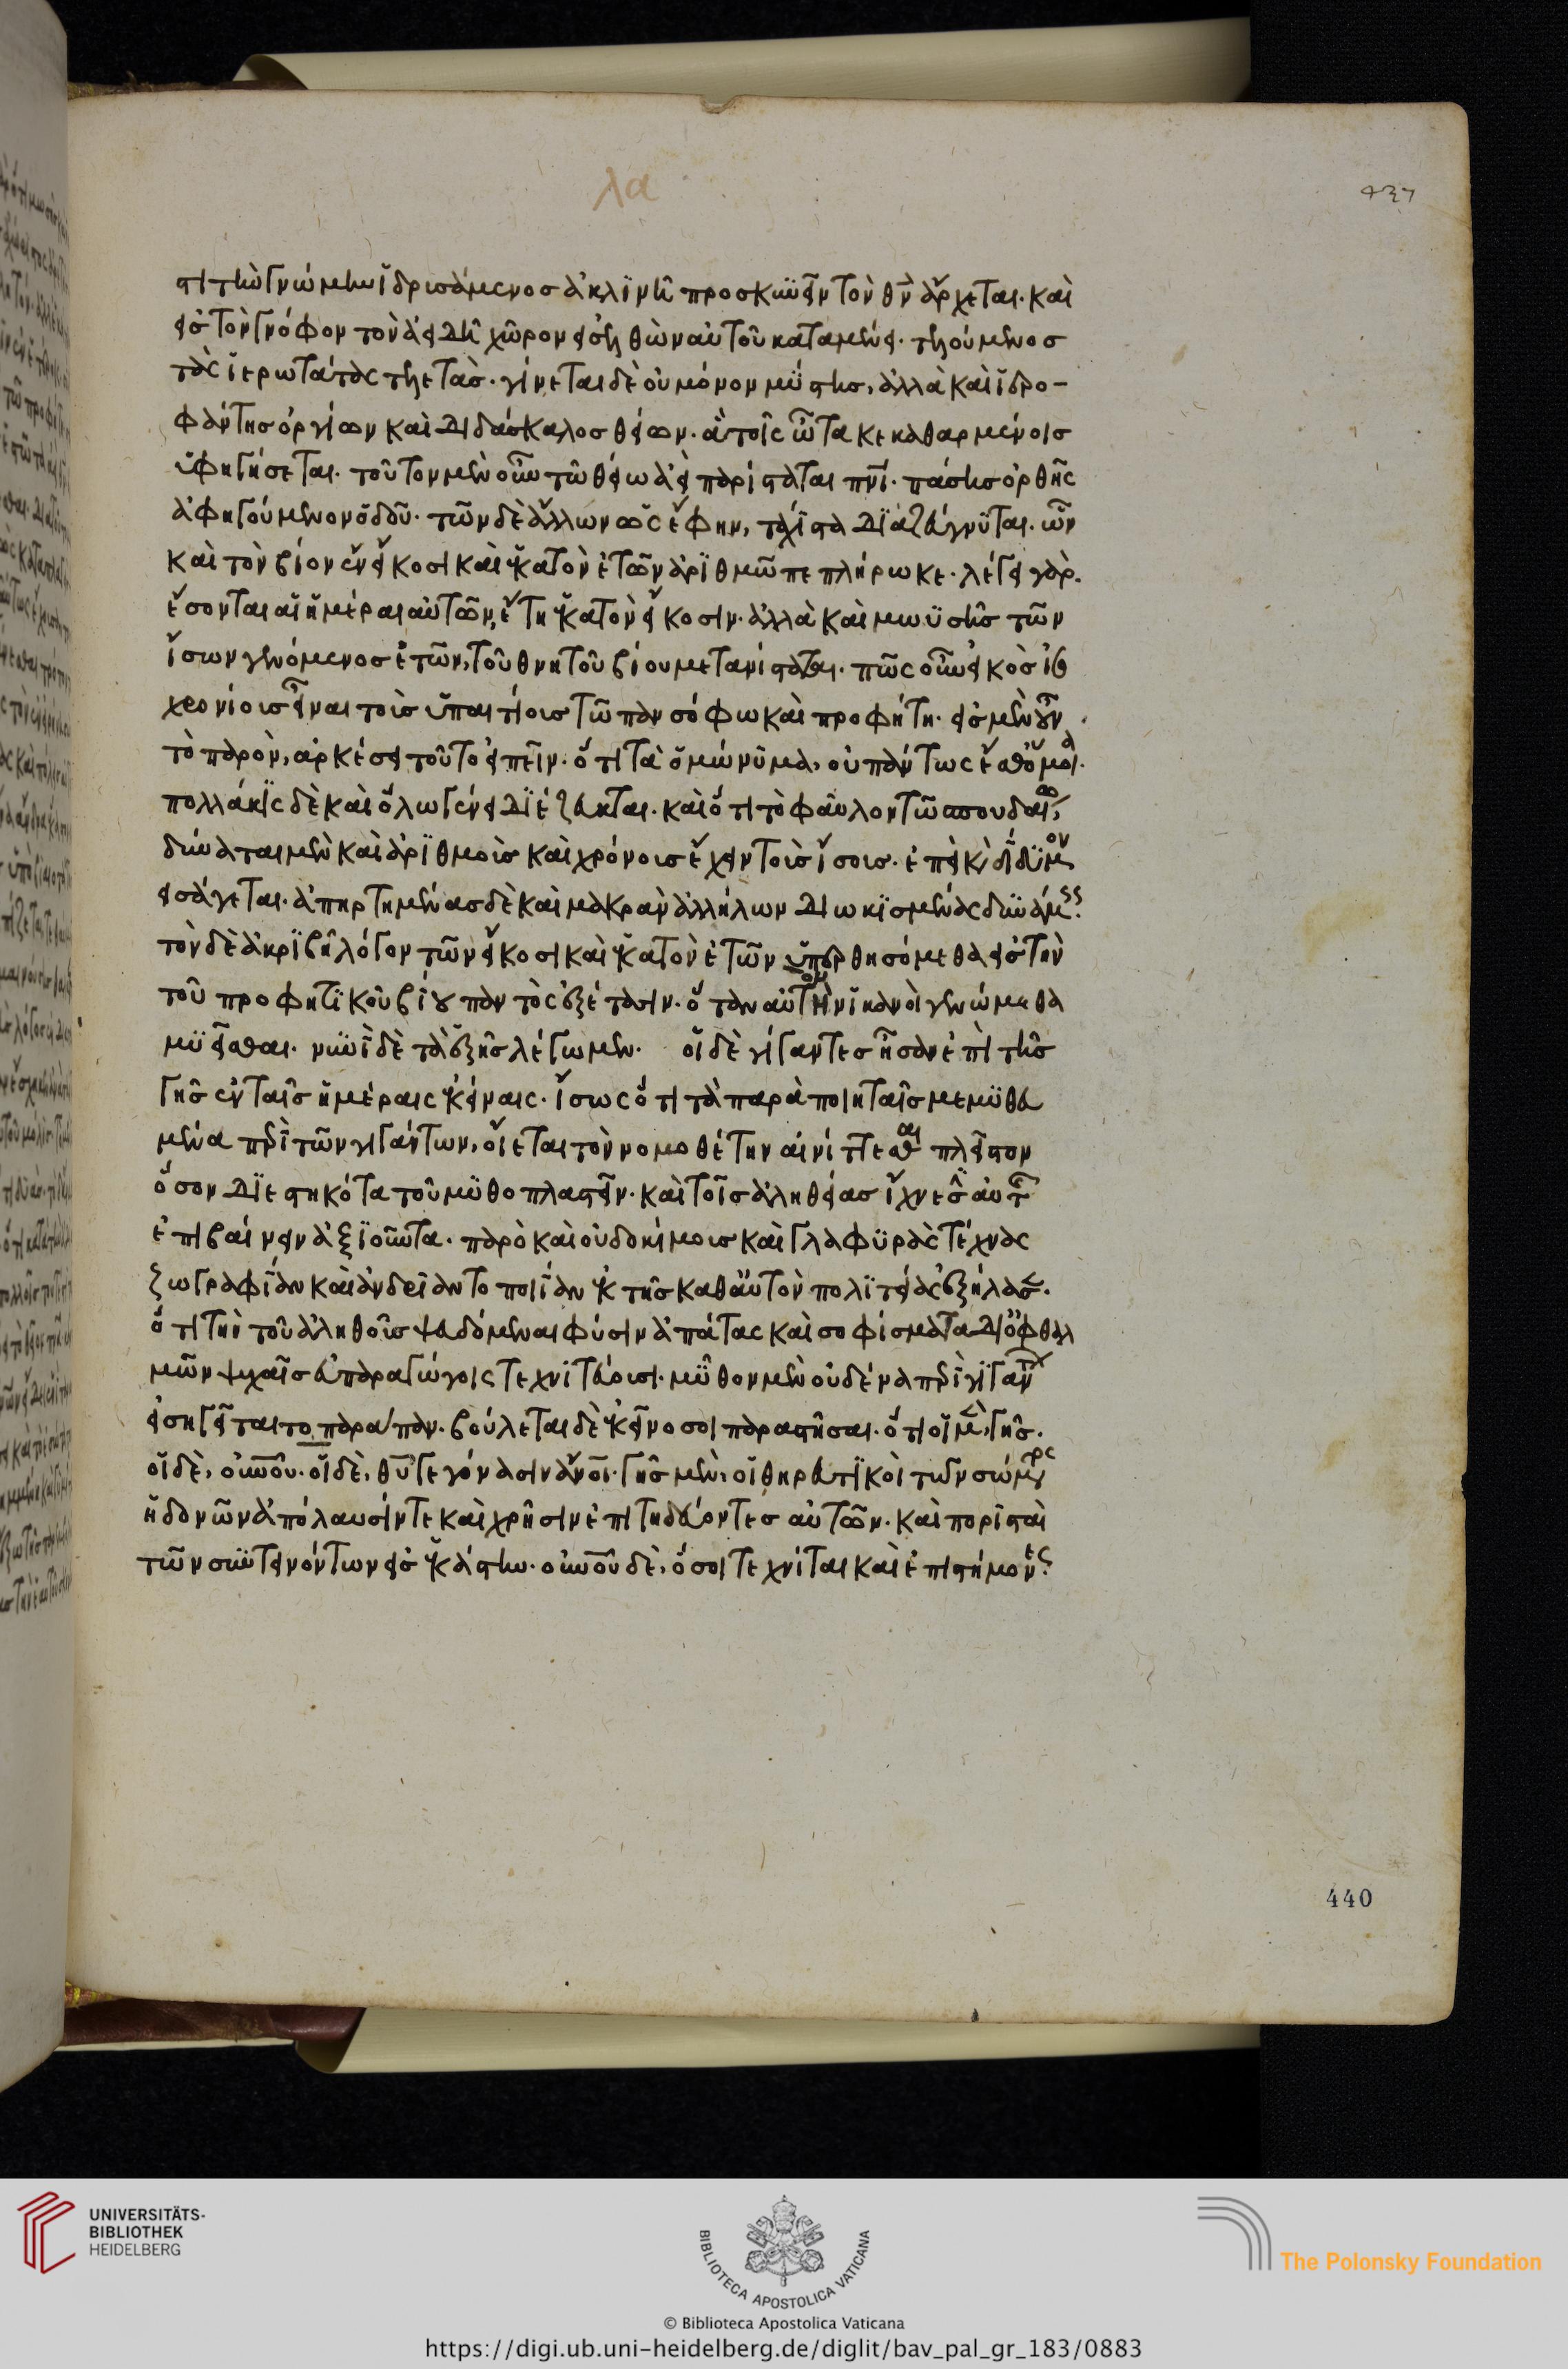 λα
437
στι τὴν γνώμην ἱδρυσάμενος ἀκλϊνῆ προσκυνεῖν τὸν θν ἄρχεται. καὶ
εἰς τὸν γνόφον τὸν ἀειδῆ χῶρον εἰσελθὼν αὐτοῦ καταμένει. τελούμενος
τὰς ἱερωτάτας τελετάς. γίνεται δὲ οὐ μόνον μύστης, ἀλλὰ καὶ ἱερο-
φάντης ὀργίων καὶ διδάσκαλος θείων. ἃ τοῖς ὦτα κεκαθαρμένοις
ὑφηγήσεται. τούτον μὲν οὖν τῶ θείω ἀεὶ παρίσταται πνι. πάσης ὀρθῆς
ἀφηγούμενον ὁδοῦ. τῶν δὲ ἄλλων ὡς ἔφην, τάχιστα διαζεύγνυται. ὧν
καὶ τὸν βίον ἐν εἴκοσι καὶ ἑκατὸν ἐτῶν ἀριθμῶ πεπλήρωκε. λέγει γάρ.
ἔσονται αἱ ἡμέραι αὐτῶν, ἔτη ἑκατὸν εἴκοσιν. ἀλλὰ καὶ μωϋσῆς τῶν
ἴσων γενόμενος ἐτῶν, τοῦ θνητοῦ βίου μετανίσταται. πῶς οὖν εἰκὸς ἰσο
χρονίοις εἶναι τοῖς ὑπαιτίοις τῶ πανσόφω καὶ προφήτη. εἰς μὲν οὖν
τὸ παρὸν, ἀρκέσει τοῦτο εἰπεῖν. ὅτι τὰ ὁμώνυμα, οὐ πάντως ἔσθ' ὅμοια.
πολλάκις δὲ καὶ ὅλω γένει διέζευκται. καὶ ὅτι τὸ φαῦλον τῶ σπουδαίω,
δύναται μὲν καὶ ἀριθμοὺς καὶ χρόνους ἔχειν τοὺς ἴσους. ἐπεὶ καὶ δίδυμον
εἰσάγεται. ἀπηρτημένας δὲ καὶ μακρὰν ἀλλήλων διωκισμένας δυνάμεις.
τὸν δὲ ἀκριβῆ λόγον τῶν εἴκοσι καὶ ἑκατὸν ἐτῶν ὑπερθησόμεθα εἰς τὴν
τοῦ προφητικοῦ βίου παντὸς ἐξέτασιν. ὅταν αὐτὸν ἱκανοὶ γενώμεθα
μυεῖσθαι. νυνὶ δὲ τὰ ἑξῆς λέγωμεν. οἱ δὲ γίγαντες ἦσαν ἐπὶ τῆς
γῆς ἐν ταῖς ἡμέραις ἐκείναις. ἴσως ὅτι τὰ παρὰ ποιηταῖς μεμυθευ
μένα περὶ τῶν γιγάντων, οἴεται τὸν νομοθέτην αἰνίττεσθαι πλεῖστον
ὅσον διεστηκότα τοῦ μυθοπλαστεῖν. καὶ τοῖς ἀληθείας ἴχνεσιν αὐτ
ἐπιβαίνειν ἀξιοῦντα. παρὸ καὶ οὐδοκίμοις καὶ γλαφυρὰς τέχνας
ζωγραφίαν καὶ ἀνδριαντοποιΐαν ἐκ τῆς καθαὑτὸν πολιτείας ἐξήλασεν.
ὅτι τὴν τοῦ ἀληθοῦς ψευδόμεναι φύσιν ἀπάτας καὶ σοφίσματα δι' ὀφθαλ
μῶν ψυχαῖς εὐπαραγώγοις τεχνιτεύουσι. μῦθον μὲν οὐδένα περὶ γιγάντων
εἰσηγεῖται τοπαράπαν. βούλεται δὲ ἐκεῖνο σοι παραστῆσαι. ὅτι οἱ μὲν, γῆς.
οἱ δὲ, οὐνοῦ. οἱ δὲ, θυ γεγόνασιν ἄνοι. γῆς μὲν, οἱ θηρευτικοὶ τῶν σώματος
ἡδονῶν ἀπόλαυσίν τε καὶ χρῆσιν ἐπιτηδεύοντες αὐτῶν. καὶ πορισταὶ
τῶν συντεινόντων εἰς ἑκάστην. οὐνοῦ δὲ, ὅσοι τεχνῖται καὶ ἐπιστήμονες.
440
UNIVERSITÄTS-
BIBLIOTHEK
HEIDELBERG
BIBLIOTECA APOSTOLICA VATICANA
The Polonsky Foundation
© Biblioteca Apostolica Vaticana
https://digi.ub.uni-heidelberg.de/diglit/bav_pal_gr_183/0883